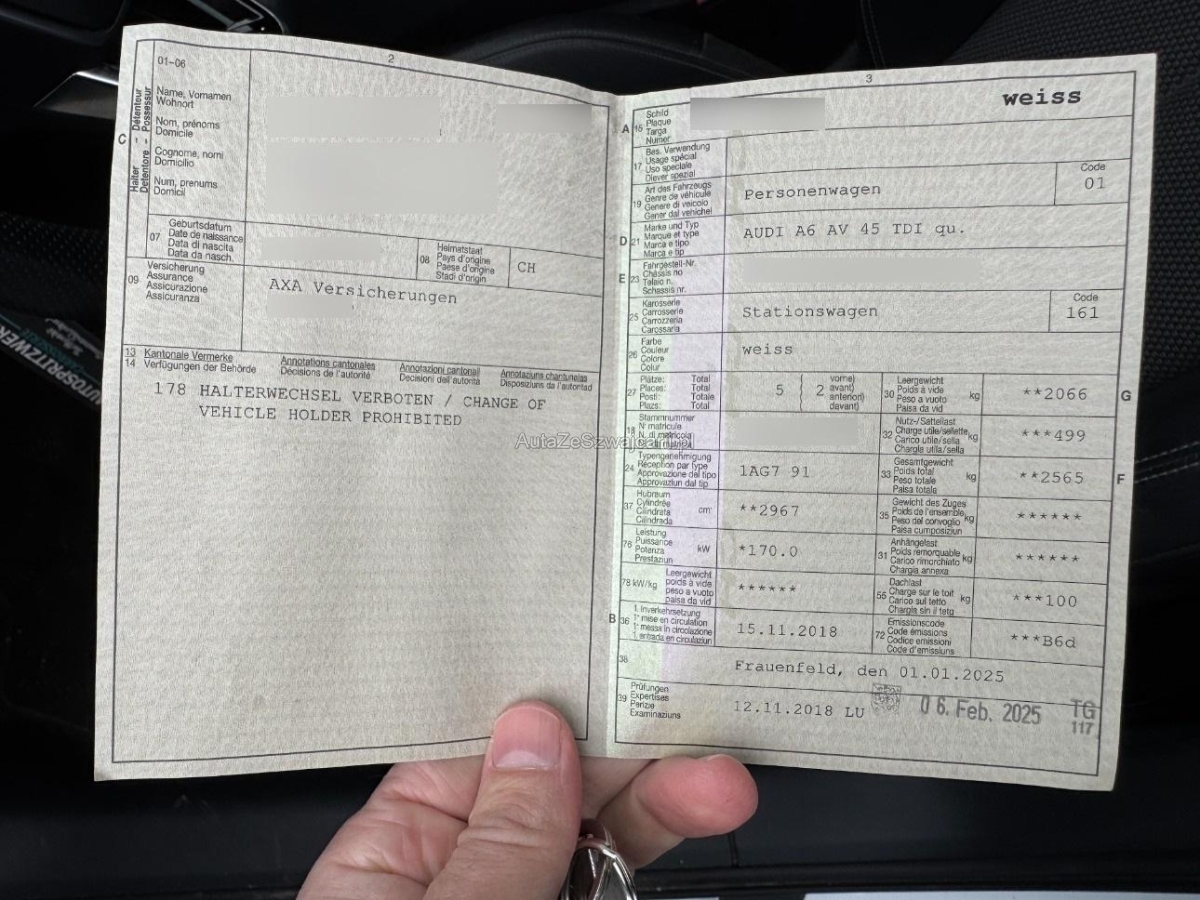 2
01-06
Halter - Détenteur
Detentore - Possessur
C
Name, Vornamen
Wohnort
Nom, prénoms
Domicile
Cognome, nomi
Domicilio
Num, prenums
Domicil
07
Geburtsdatum
Date de naissance
Data di nascita
Data da nasch.
08
Heimatstaat
Pays d'origine
Paese d'origine
Stadi d'origin
CH
09
Versicherung
Assurance
Assicurazione
Assicuranza
AXA Versicherungen
13 Kantonale Vermerke
Annotations cantonales
Annotazioni cantonali
Annotaziuns chantunalas
14 Verfügungen der Behörde
Décisions de l'autorité
Decisioni dell'autorità
Disposiziuns da l'autoritad
178 HALTERWECHSEL VERBOTEN / CHANGE OF
VEHICLE HOLDER PROHIBITED
3
weiss
A 15
Schild
Plaque
Targa
Numer
17
Bes. Verwendung
Usage spécial
Uso speciale
Diever spezial
19
Art des Fahrzeugs
Genre de véhicule
Genere di veicolo
Gener dal vehichel
Personenwagen
Code
01
D 21
Marke und Typ
Marque et type
Marca e tipo
Marca e tip
AUDI A6 AV 45 TDI qu.
E 23
Fahrgestell-Nr.
Châssis no
Telaio n.
Schassis nr.
25
Karosserie
Carrosserie
Carrozzeria
Carossaria
Stationswagen
Code
161
26
Farbe
Couleur
Colore
Colur
weiss
27
Plätze: Total
Places: Total
Posti: Totale
Plazs: Total
5
2
vorne)
avant)
anteriori)
davant)
30
Leergewicht
Poids à vide
Peso a vuoto
Paisa da vid
kg
**2066
G
18
Stammnummer
N° matricule
N. di matricola
32
Nutz-/Sattellast
Charge utile/sellette
Carico utile/sella
Chargia utila/sella
kg
***499
AutaZeSzwajcarii.pl
24
Typengenehmigung
Réception par type
Approvazione del tipo
Approvaziun dal tip
1AG7 91
33
Gesamtgewicht
Poids total
Peso totale
Paisa totala
kg
**2565
F
37
Hubraum
Cylindrée
Cilindrata
Cilindrada
cm³
**2967
35
Gewicht des Zuges
Poids de l'ensemble
Peso del convoglio
Paisa cumposiziun
kg
******
76
Leistung
Puissance
Potenza
Prestaziun
kW
*170.0
31
Anhängelast
Poids remorquable
Carico rimorchiato
Chargia annexa
kg
******
78 kW/kg
Leergewicht
poids à vide
peso a vuoto
paisa da vid
******
55
Dachlast
Charge sur le toit
Carico sul tetto
Chargia sin il tetg
kg
***100
B 36
1. Inverkehrsetzung
1re mise en circulation
1a messa in circolazione
1. entrada en circulaziun
15.11.2018
72
Emissionscode
Code émissions
Codice emissioni
Code d'emissiuns
***B6d
38
Frauenfeld, den 01.01.2025
39
Prüfungen
Expertises
Perizie
Examinaziuns
12.11.2018 LU
06. Feb. 2025
TG
117
AUTOSPRITZWER